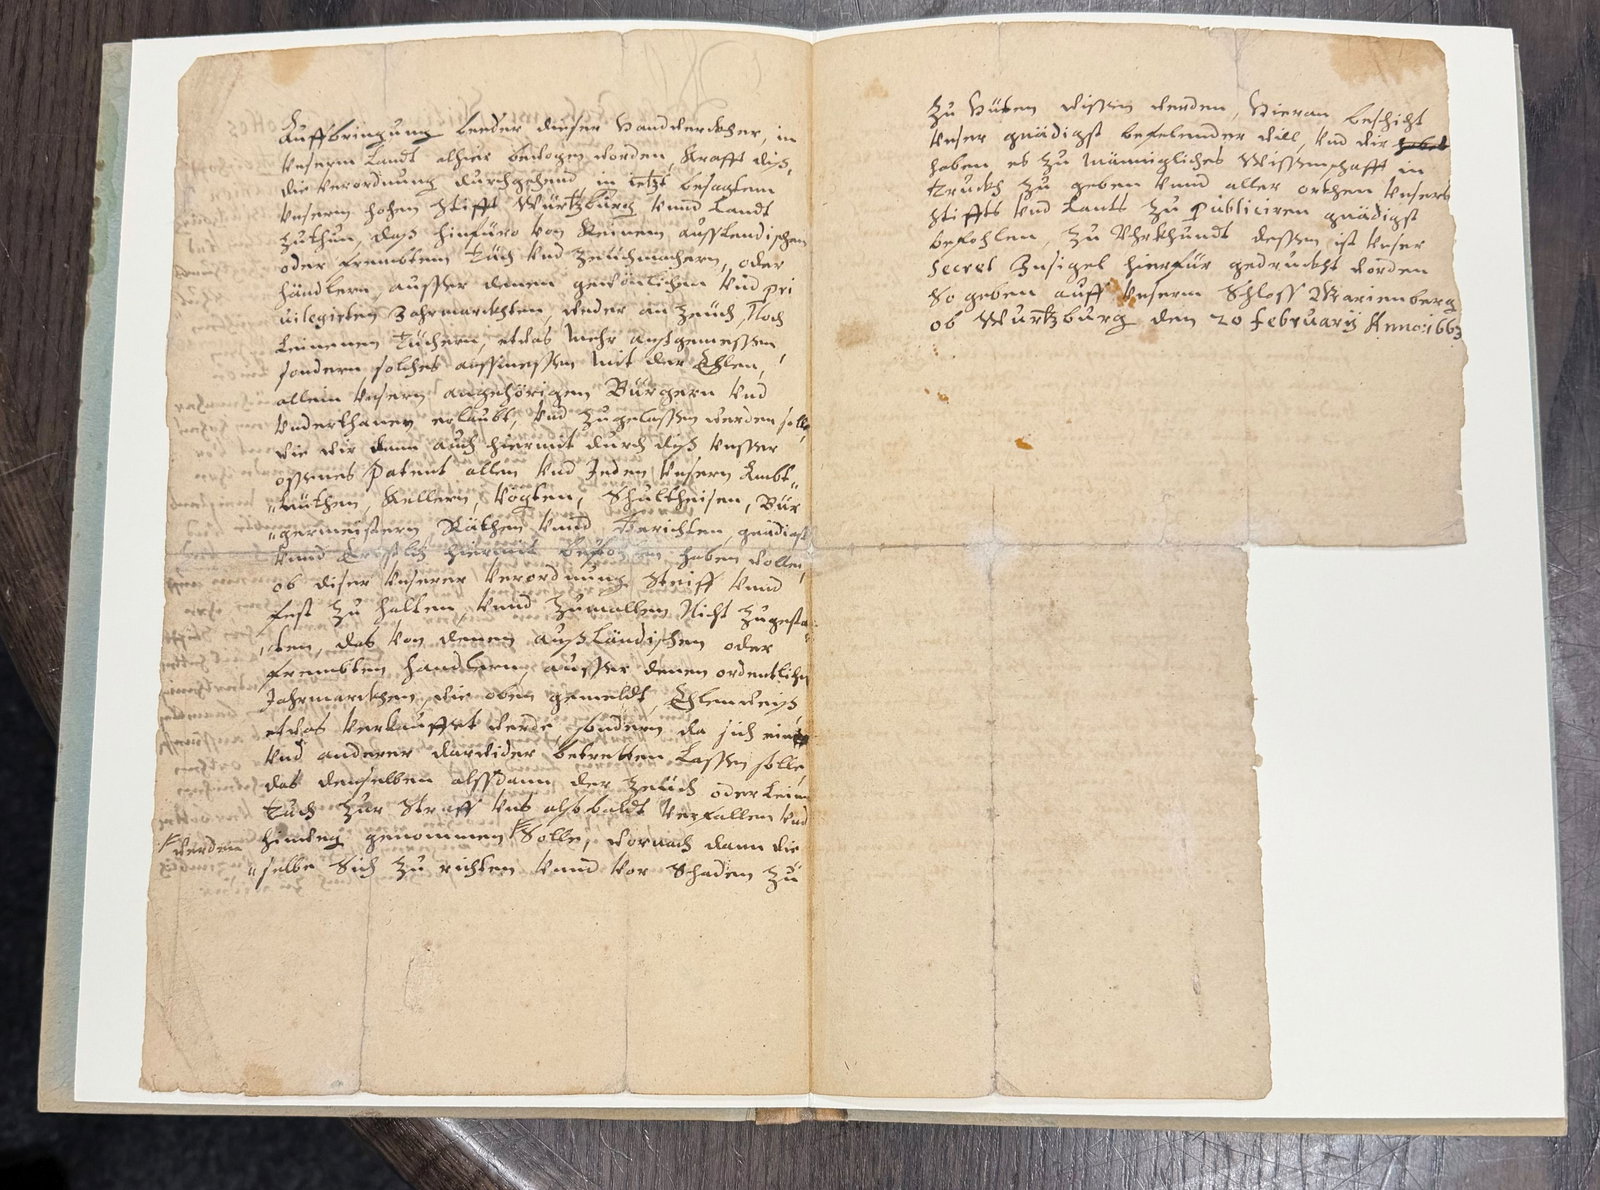 Auffbringung beeder dieser Handtwerckher, in
Unserm Landt alhier bewogen worden, Krafft diß,
die Verordnung durchgehend in ietzt besagtem
Unserm hohen Stifft Würtzburg Vnnd Landt
zuthun, daß hinfüro von Keinem ausslendischen
oder frembtem Tuch Vnd Zeuchmachern, oder
händlern, ausser denen gewönlichen Vnd pri
uilegirten Jahrmarckhten, weder an Zeuch, Noch
Leinenen Tüchern, etwas mehr aussgemessen,
sondern solches aussmessen mit der Ehlen,
allein Vnsern angehörigen Bürgern Vnd
Vnderthanen erlaubt, Vnd zugelassen werden solle,
wie wir dann auch hiermit durch diß Vnsser
offenes Patent allen Vnd Jeden Vnsern Ambt"
"leüthen, Kellern, Vögten, Schultheisen, Bür
"germeistern Räthen Vnnd Gerichten, gnädigst
Vnnd Ernstlich hiermit befohlen haben wollen,
ob diser Vnserer Verordnung Steiff Vnnd
fest zu halten, Vnnd zumallen Nicht zugesta
ten, das von denen außländischen oder
frembten handlern, ausser denen ordentlichen
Jahrmarckhen, wie oben gemeldt, Ehlenweiß
etwas verkauffet werde, sondern da sich einer
Vnd anderer darwider betretten Lassen solle,
das denselben alssdann der Zeüch oder Leinen
Tuch zur Straff Vns alsobaldt Verfallen Vnd
werden hinweg genommen Solle, wornach dann die
"selbe Sich zu richten Vnnd vor Schaden zu
zu Hüten wissen werden, Hieran beschicht
Vnser gnädigst befelender will, Vnd wir
haben es zu männigliches Wissenschafft in
Truckh zu geben Vnnd aller orthen Vnsers
Stiffts Vnd Lants zu publiciren gnädigst
befohlen, zu Vhrkhundt dessen ist Vnser
Secret Insigel hierfür gedruckht worden
So geben auff Vnserm Schloss Marienberg
ob Würtzburg den 20 februarij Anno: 1663